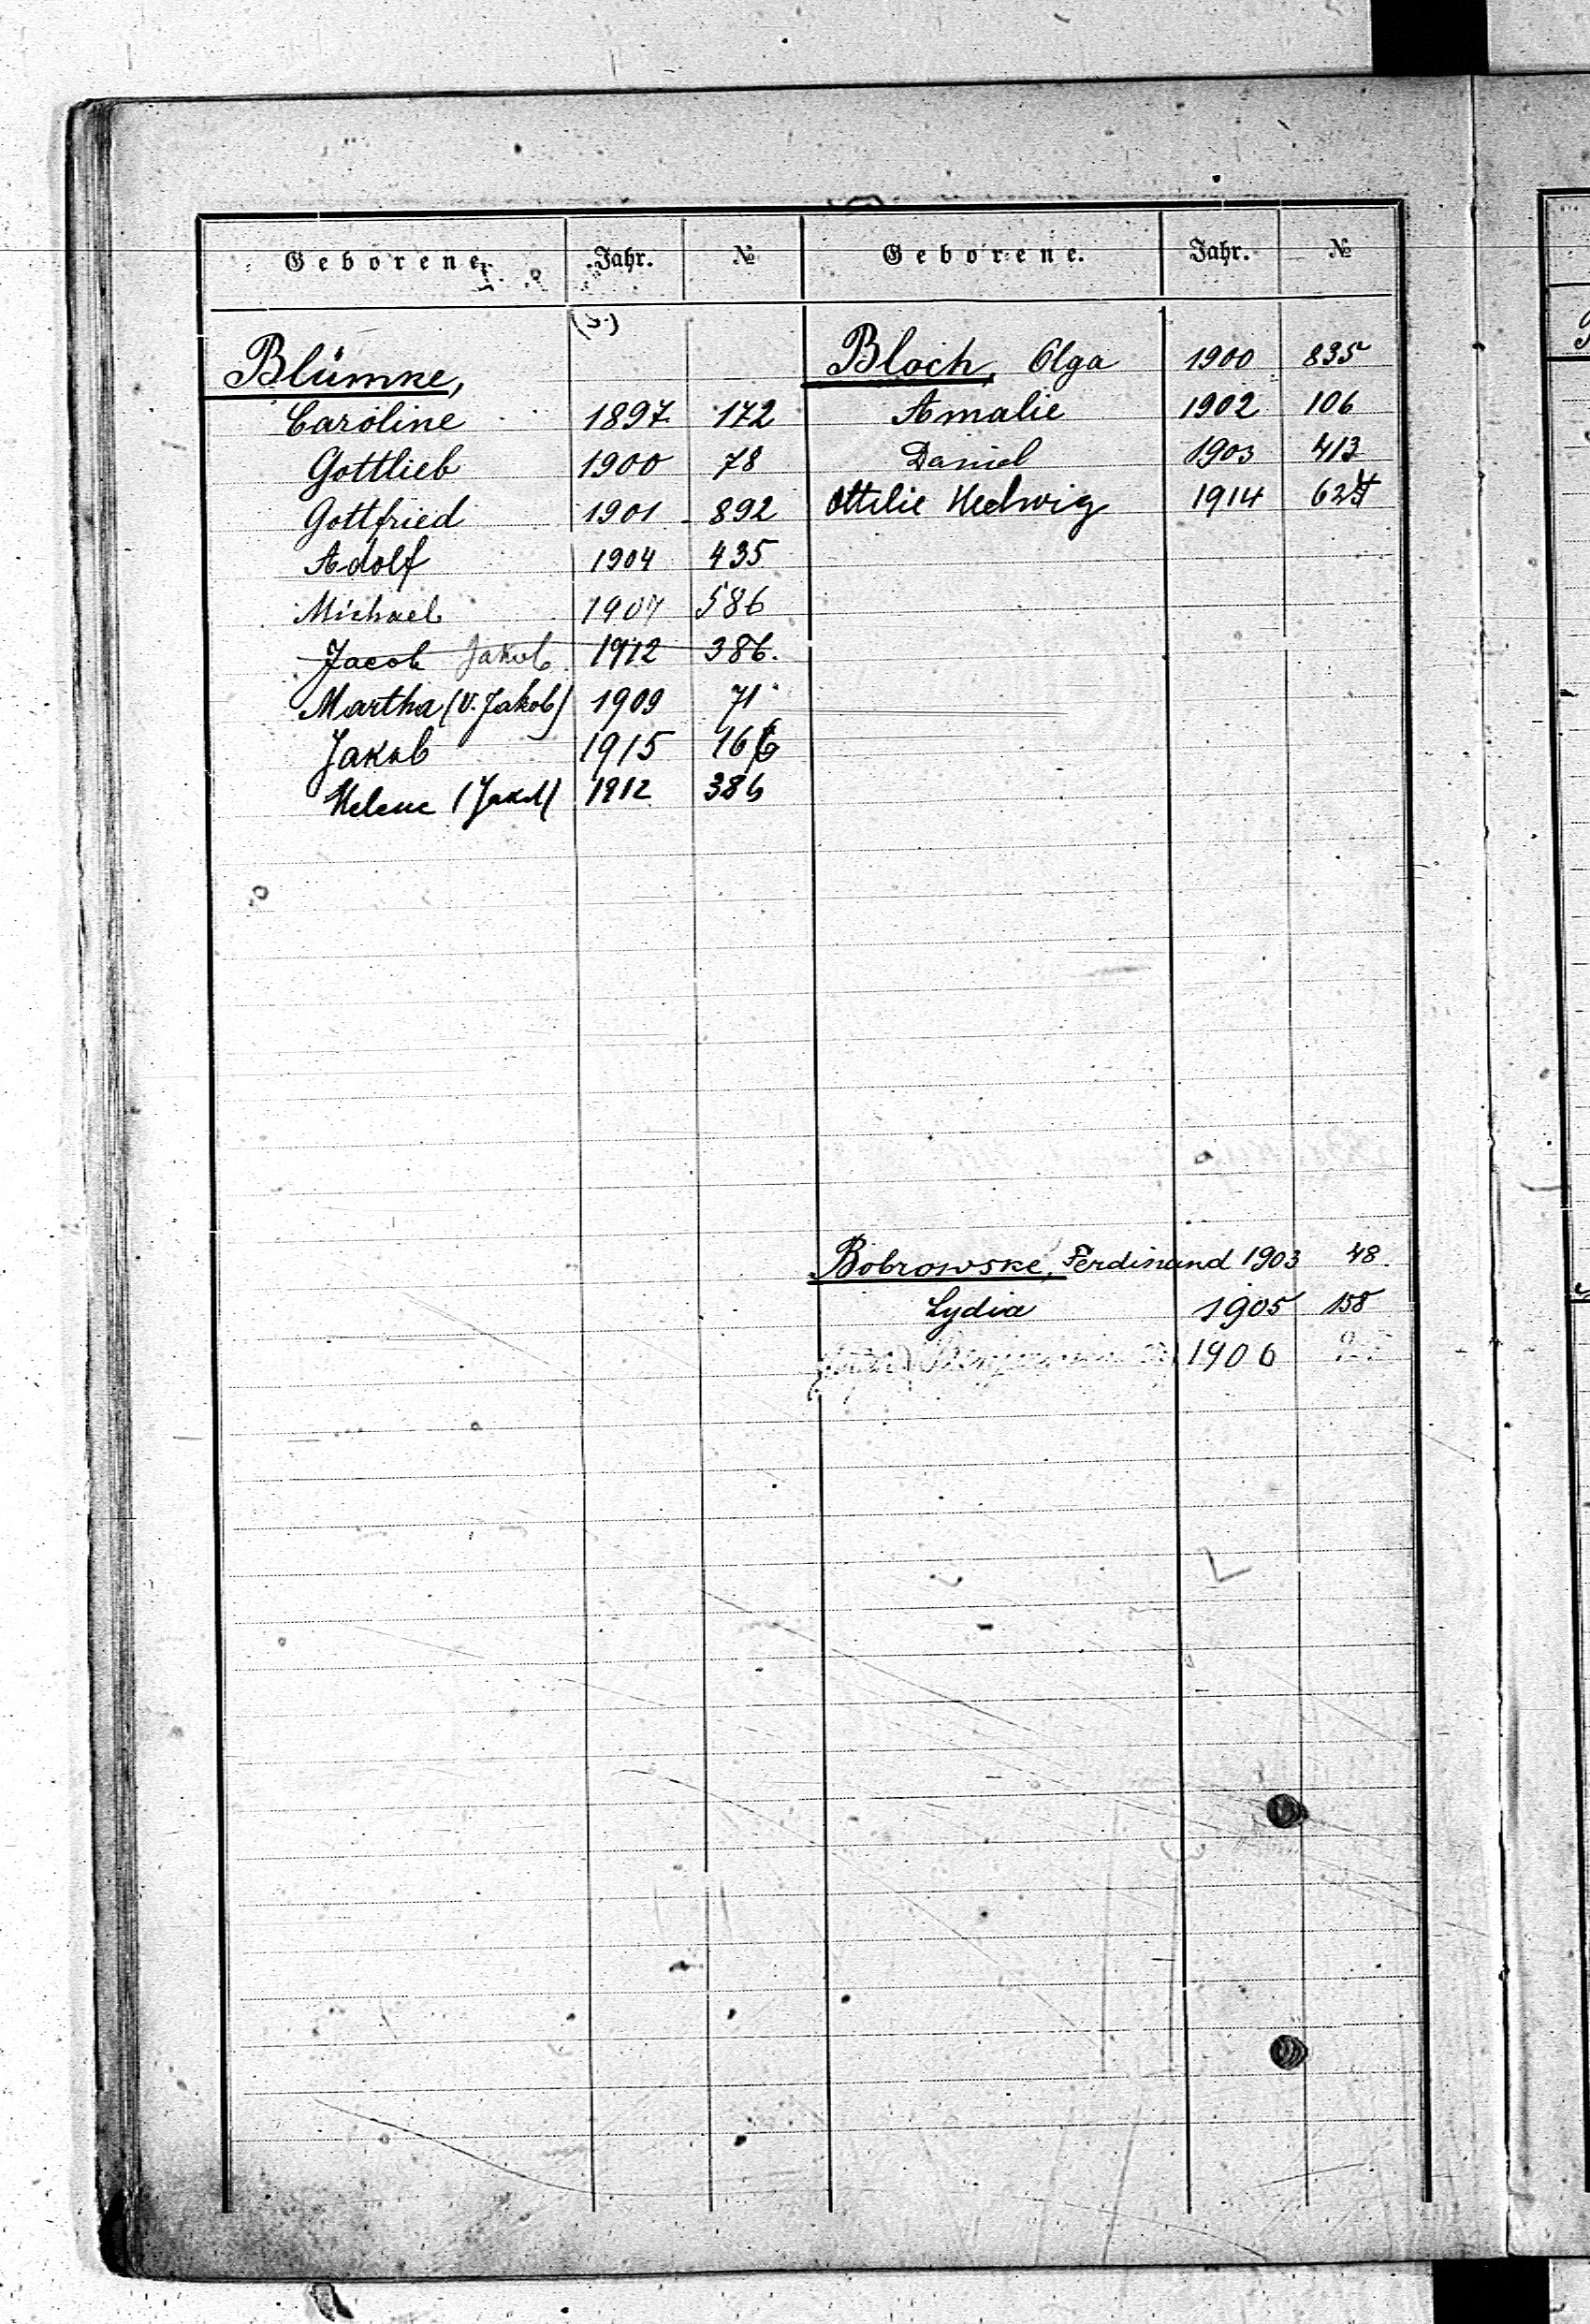 Geborene. Jahr. №
Blümke,
Caroline 1897. 172
Gottlieb 1900 78
Gottfried 1901 892
Adolf 1904 435
Michael 1907 586
Jacob Jakob 1912 386.
Martha (V. Jakob) 1909 71
Jakob 1915 166
Helene (Jakob) 1912 386
Geborene. Jahr. №
Bloch, Olga 1900 835
Amalie 1902 106
Daniel 1903 413
Ottilie Hedwig 1914 624
Bobrowske, Ferdinand 1903 48.
Lydia 1905 158
1906